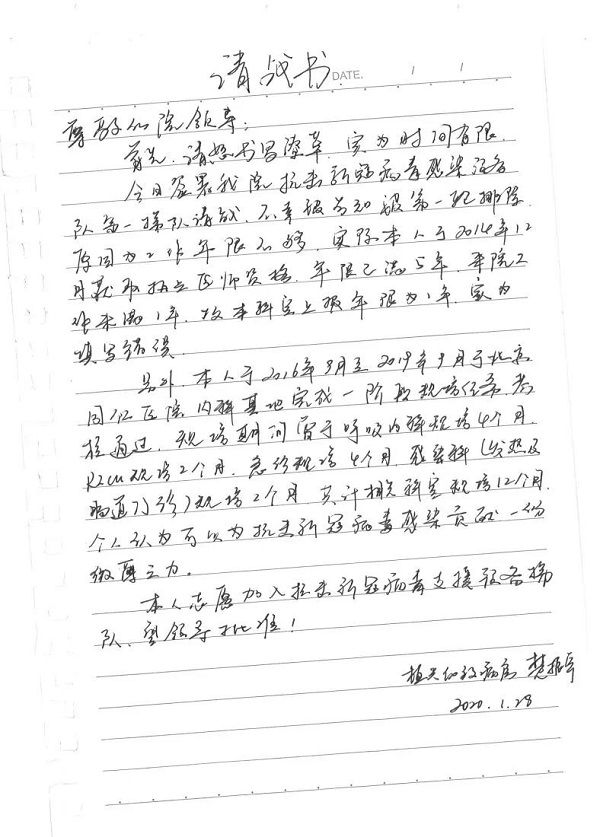 请战书
DATE. / /
尊敬的院领导:
首先,请恕书写潦草,实为时间有限.
今日召集我院抗击新冠病毒感染预备
队第一梯队请战,不幸被告知被第一批排除,
原因为工作年限不够,实际本人于2014年12
月获取执业医师资格,年限已满5年,本院工
作未满1年,故本科室上报年限为1年,实为
填写错误.
另外,本人于2016年9月至2019年9月于北京
同仁医院内科基地完成一阶段规培任务,考
核通过,规培期间曾于呼吸内科规培4个月,
RICU规培2个月,急诊规培4个月,感染科(发热及
肠道门诊)规培2个月,共计相关科室规培12个月.
个人认为可以为抗击新冠病毒感染贡献一份
微薄之力。
本人志愿加入抗击新冠病毒支援预备梯
队,望领导批准!
2020.1.28